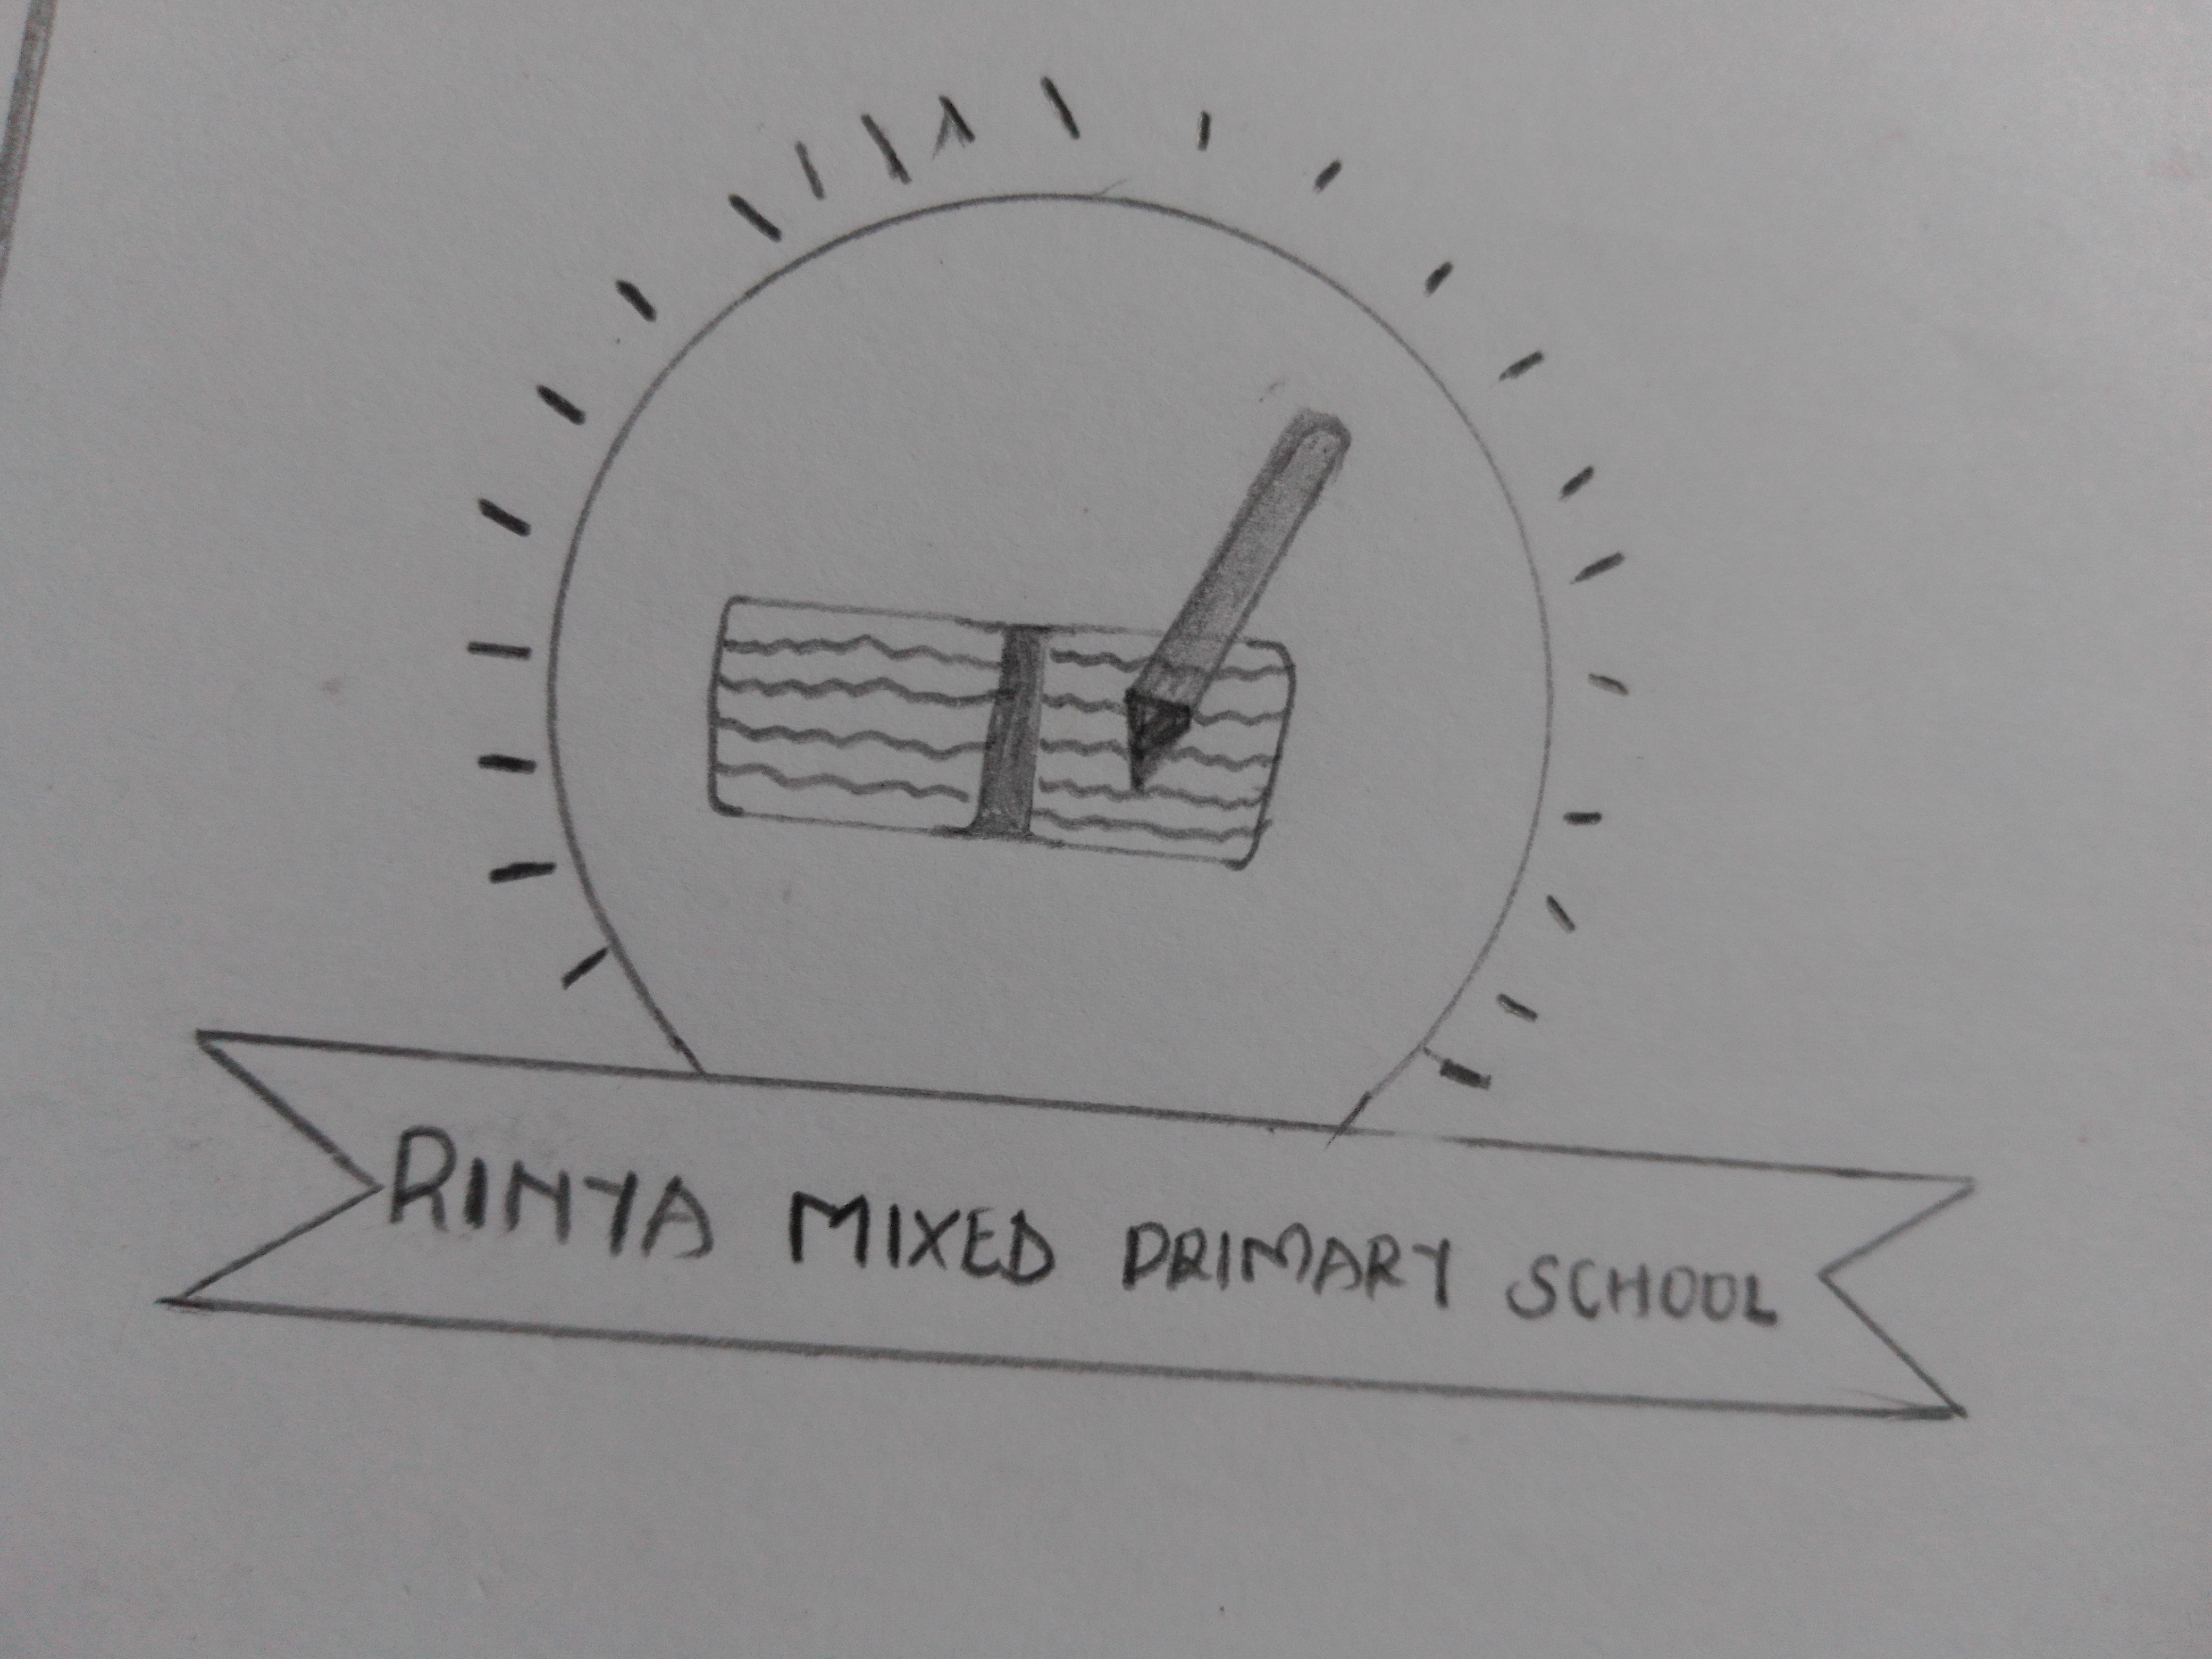 RINYA MIXED PRIMARY SCHOOL